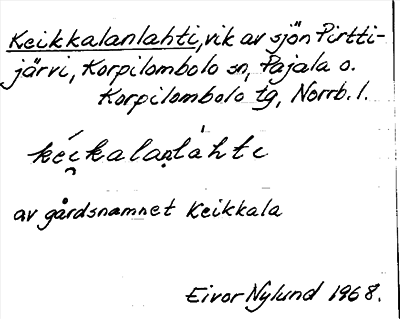 Keikkalanlahti, vik av sjön Pirtti-
järvi, Korpilombolo sn, Pajala o.
Korpilombolo tg, Norrb. l.
kéi̯kalanlàhti
av gårdsnamnet Keikkala
Eivor Nylund 1968.